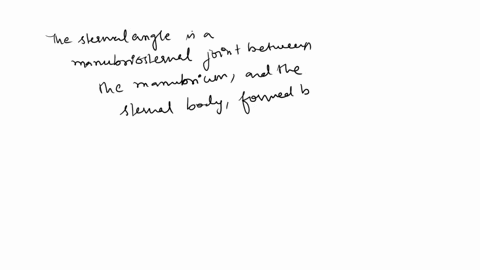 The sternal angle is a
manubriosternal joint between
the manubrium, and the
sternal body, formed b